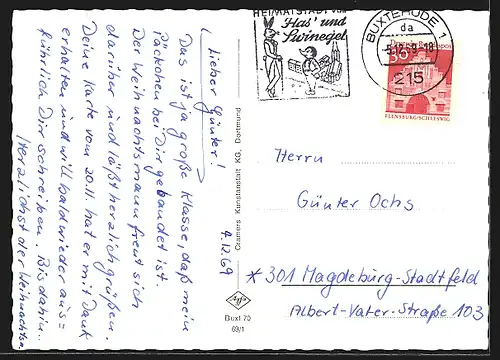 Lieber Günter!
Das ist ja große Klasse, daß mein
Päckchen bei Dir gelandet ist.
Der Weihnachtsmann freut sich
darüber und läßt herzlich grüßen.
Deine Karte vom 20.11. hat er mit Dank
erhalten und will bald wieder aus=
führlich Dir schreiben. Bis dahin...
Herzlichst der Weihnachtsm.
4.12.69
Cramers Kunstanstalt KG, Dortmund
Agfa
Buxt 70
69/1
HEIMATSTADT von
Has' und
Swinegel
BUXTEHUDE 1
da
-5.12.69-18
215
FLENSBURG/SCHLESWIG
Herrn
Günter Ochs
*301 Magdeburg-Stadtfeld
Albert-Vater-Straße 103